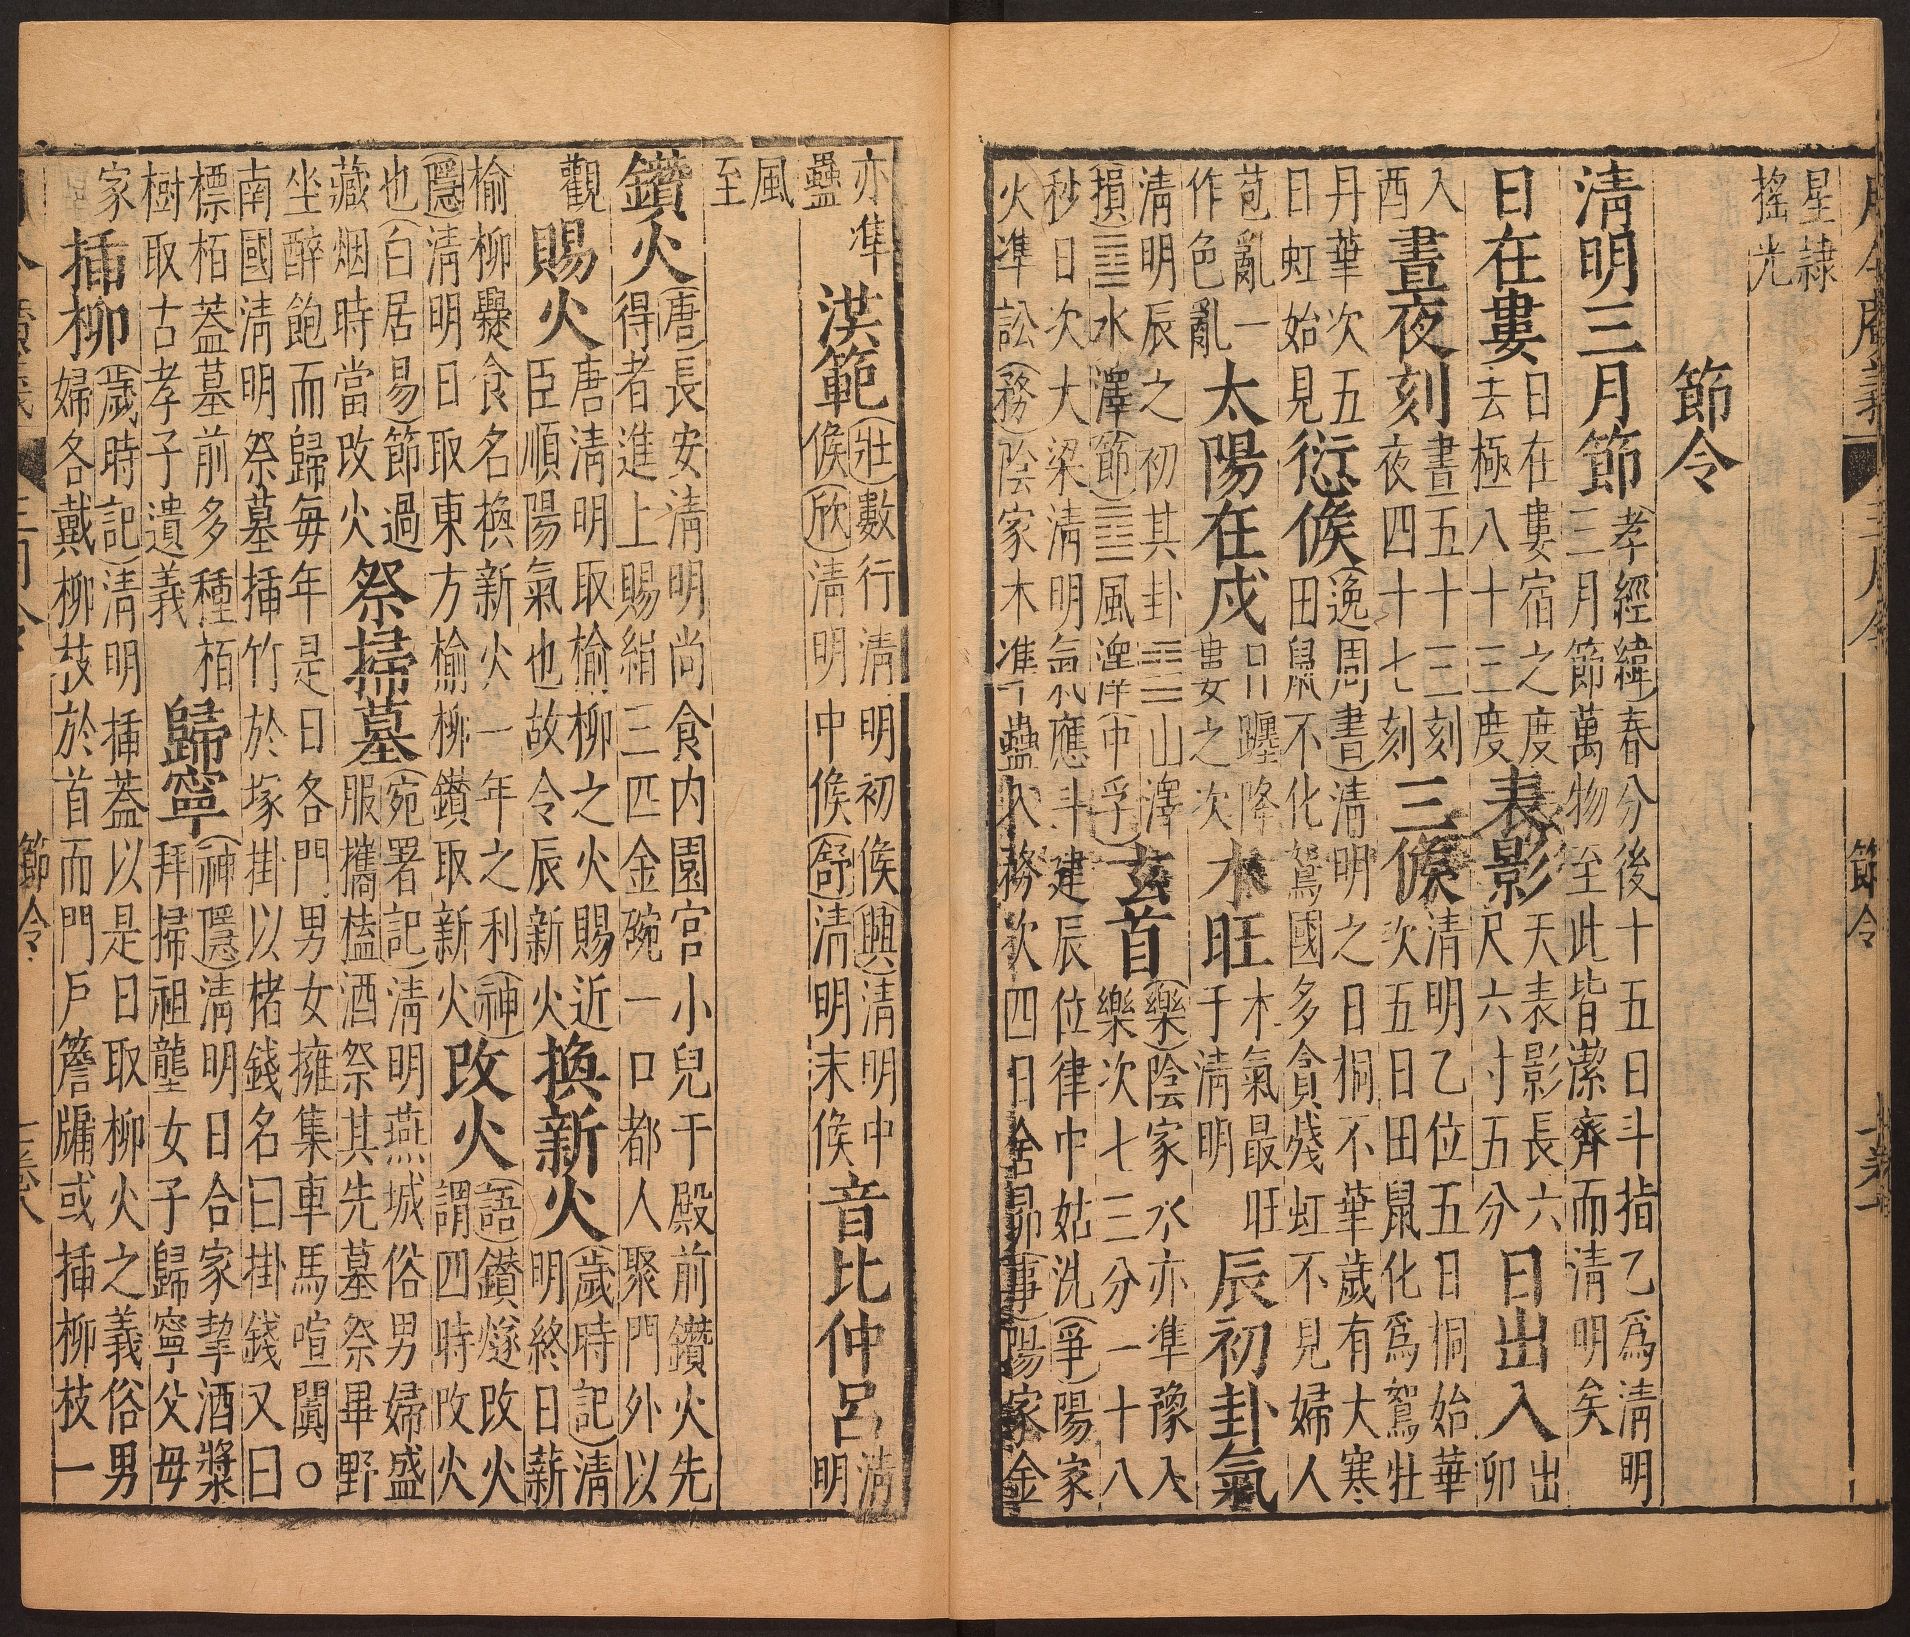 星隷
搖光
節令
清明三月節(孝經緯)春分後十五日斗指乙爲清明
三月節萬物至此皆潔齊而清明矣
日在婁日在婁宿之度
去極八十三度
表影天表影長六
尺六寸五分
日出入出
卯
入
酉
晝夜刻晝五十三刻
夜四十七刻
三候清明乙位五日桐始華
次五日田鼠化爲鴽牡
丹華次五
日虹始見
衍候(逸周書)清明之日桐不華歲有大寒
田鼠不化鴽國多貪殘虹不見婦人
苞亂一
作色亂
太陽在戌日躔降
婁之次
木旺木氣最旺
于清明
辰初卦氣
清明辰之初其卦䷨山澤
(損)䷻水澤(節)䷼風澤(中孚)
玄首(樂)陰家水亦準豫入
樂次七三分一十八
秒日次大梁清明氣應斗建辰位律中姑洗(爭)陽家
火準訟(務)陰家木準蠱入務次四日舍昴(事)陽家金
亦準
蠱
洪範(壯)數行清明初候(興)清明中
候(欣)清明中候(舒)清明末候
音比仲呂清
明
風
至
鑽火(唐)長安清明尚食內園官小兒于殿前鑽火先
得者進上賜絹三匹金碗一口都人聚門外以
觀
賜火唐清明取榆柳之火賜近
臣順陽氣也故令辰新火
換新火(歲時記)清
明終日薪
榆柳爨食名換新火一年之利(神
隱)清明日取東方榆柳鑽取新火
改火(語)鑽燧改火
謂四時改火
也(白居易)節過
藏烟時當改火
祭掃墓(宛署記)清明燕城俗男婦盛
服攜榼酒祭其先墓祭畢野
坐醉飽而歸每年是日各門男女擁集車馬喧闐○
南國清明祭墓插竹於塚掛以楮錢名曰掛錢又曰
標栢蓋墓前多種栢
樹取古孝子遺義
歸寧(神隱)清明日合家挈酒漿
拜掃祖壟女子歸寧父毋
家
插柳(歲時記)清明插蓋以是日取柳火之義俗男
婦各戴柳枝於首而門戶簷牖或插柳枝一
節令
節令